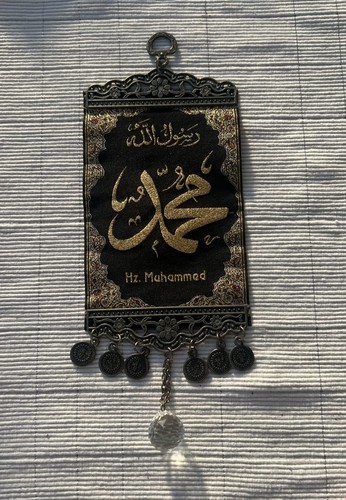 رسول الله
محمد
Hz. Muhammed